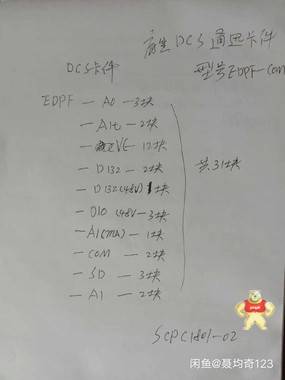 DCS通迅卡件
DCS卡件
型号EDPF-COM
EDPF — AO — 3块
— AI — 2块
VE — 12块
— DI32 — 2块
— DI32(48V) 1块
— DIO (48V — 3块
— AI(MA) — 1块
— COM — 2块
— SD — 3块
— AI — 2块
共31块
SCPC1801-02
闲鱼@聂均奇123